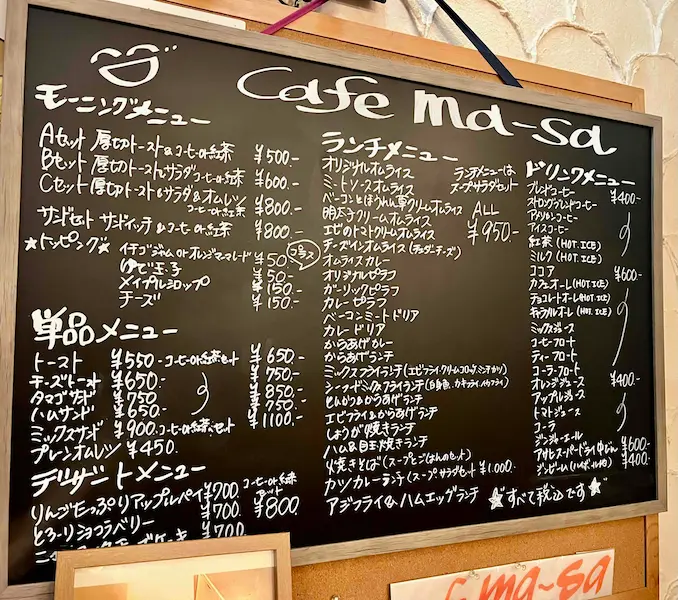 cafe ma-sa
モーニングメニュー
Aセット 厚切トースト&コーヒーor紅茶 ¥500-
Bセット 厚切トースト&サラダコーヒーor紅茶 ¥600.-
Cセット厚切トースト&サラダ&オムレツ
コーヒーor紅茶 ¥800-
サンドセット サンドイッチ&コーヒーor紅茶 ¥800.-
★トッピング★ イチゴジャムorオレンジマーマレード ¥50
ゆで玉子 ¥50-
メイプルシロップ ¥150.-
チーズ ¥150.-
単品メニュー
トースト ¥550-コーヒーor紅茶セット ¥650-
チーズトースト ¥650- ¥750-
タマゴサンド ¥750 ¥850-
ハムサンド ¥650- ¥750-
ミックスサンド ¥900.コーヒーor紅茶.セット ¥1100-
プレーンオムレツ ¥450.
デザートメニュー
りんごたっぷりアップルパイ ¥700. コーヒーor紅茶
とろーりショコラベリー ¥700. セット ¥800
¥700-
ランチメニュー
オリジナルオムライス
ミートソースオムライス
ベーコンとほうれん草クリームオムライス
明太子クリームオムライス
エビのトミトクリームオムライス
チーズインオムライス(チェダーチーズ)
オムライスカレー
オリジナルピラフ
ガーリックピラフ
カレーピラフ
ベーコンミートドリア
カレードリア
からあげカレー
からあげランチ
ミックスフライランチ(エビフライ・クリームコロッケ.ミンチカツ)
シーフードミックスフライランチ(白身魚、カキフライ、イカフライ)
とんかつ&からあげランチ
エビフライ&からあげランチ
しょうが焼きランチ
ハム&目玉焼きランチ
焼きそば(スープとごはんのセット)
カツカレーランチ(スープサラダセット ¥1.000-
アジフライ&ハムエッグランチ
ランチメニューは
スープサラダセット
ALL
¥950-
ドリンクメニュー
ブレンドコーヒー ¥400-
ストロングブレンドコーヒー
アメリカンコーヒー
アイスコーヒー
紅茶(HOT.ICE)
ミルク(HOT.ICE)
ココア ¥600-
カフェオーレ(HOT.ICE)
チョコレートオーレ(HOT.ICE)
キャラメルオーレ(HOT.ICE)
ミックスジュース
コーヒーフロート
ティーフロート
コーラフロート
オレンジジュース ¥400-
アップルジュース
トマトジュース
コーラ
ジンジャーエール
アサヒスーパードライ中びん ¥600-
ジンビーム(ハイボール他) ¥400-
★すべて税込です★
ma-sa